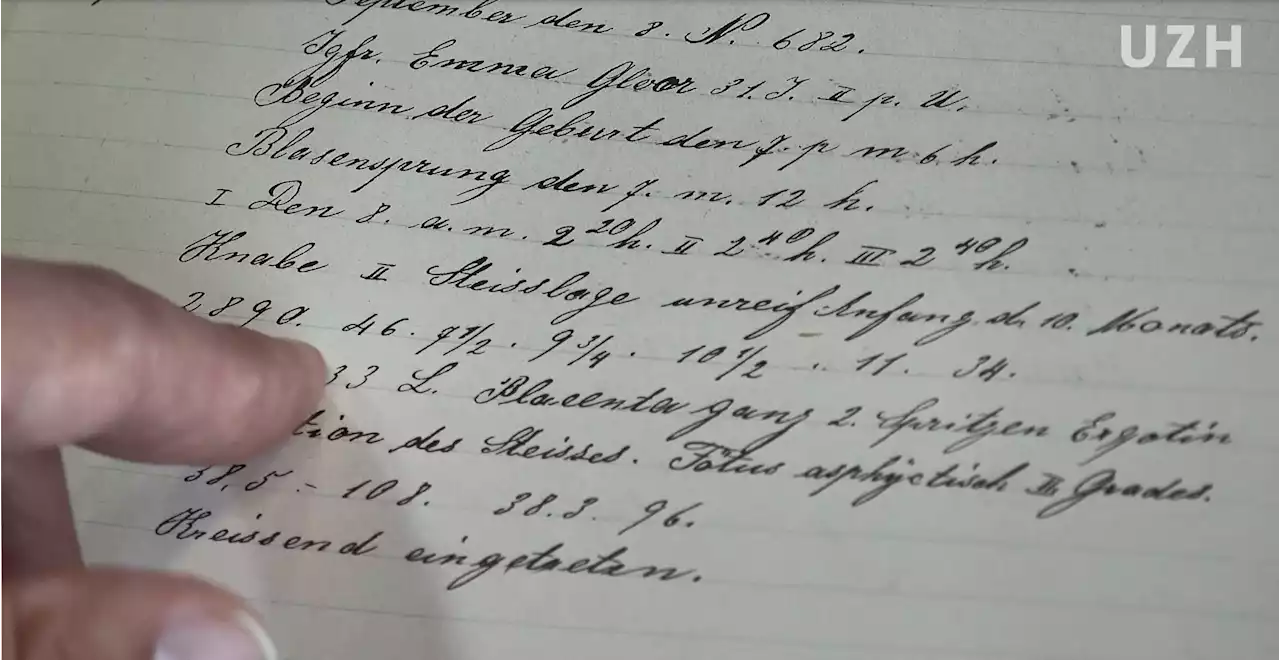 UZH
September den 8. N. 682.
Igfr. Emma Gloor 31. J. II p. U.
Beginn der Geburt den 7. p m 6 h.
Blasensprung den 7. m. 12 h.
I Den 8. a. m. 2 20 h. II 2 40 h. III 2 40 h.
Knabe II Steisslage unreif Anfang d. 10. Monats.
2890. 46. 7 1/2 . 9 3/4 . 10 1/2 . 11. 34.
33 L. Placenta ganz 2. Spritzen Ergotin
tion des Steisses. Fötus asphyctisch II. Grades.
38,5 - 108. 38.3. 96.
Kreissend eingetreten.